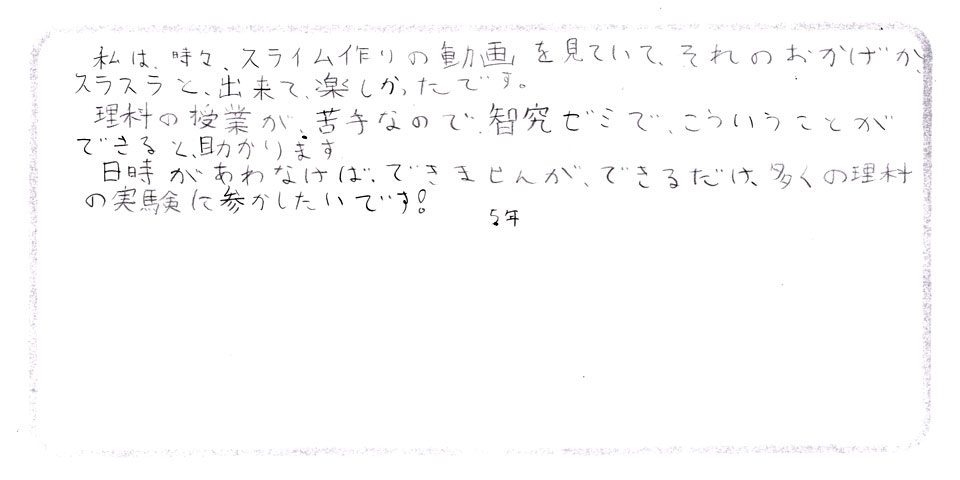 私は、時々、スライム作りの動画を見ていて、それのおかげか、
スラスラと、出来て、楽しかったです。
理科の授業が、苦手なので、智究ゼミで、こういうことが
できると、助かります
日時があわなければ、できませんが、できるだけ、多くの理科
の実験に参かしたいです!
5年